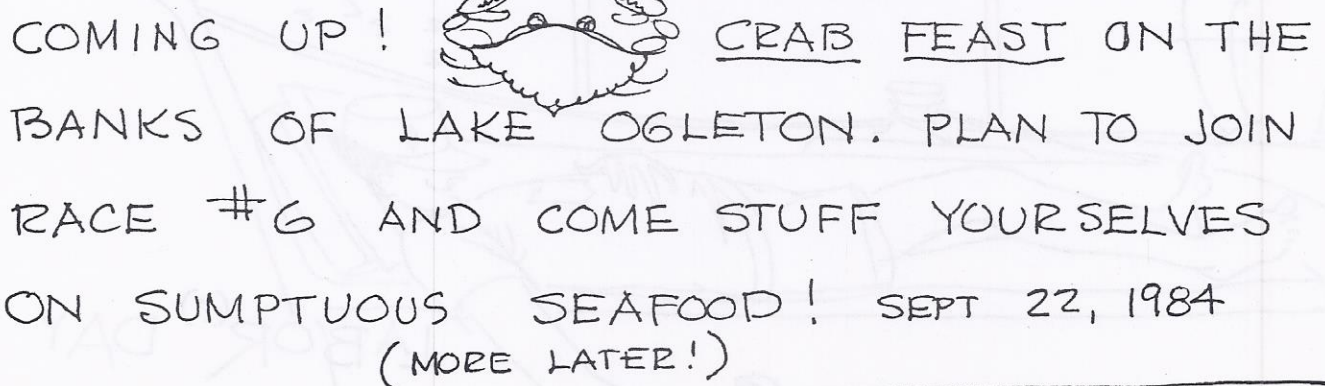 COMING UP! CRAB FEAST ON THE
BANKS OF LAKE OGLETON. PLAN TO JOIN
RACE #6 AND COME STUFF YOURSELVES
ON SUMPTUOUS SEAFOOD! SEPT 22, 1984
(MORE LATER!)